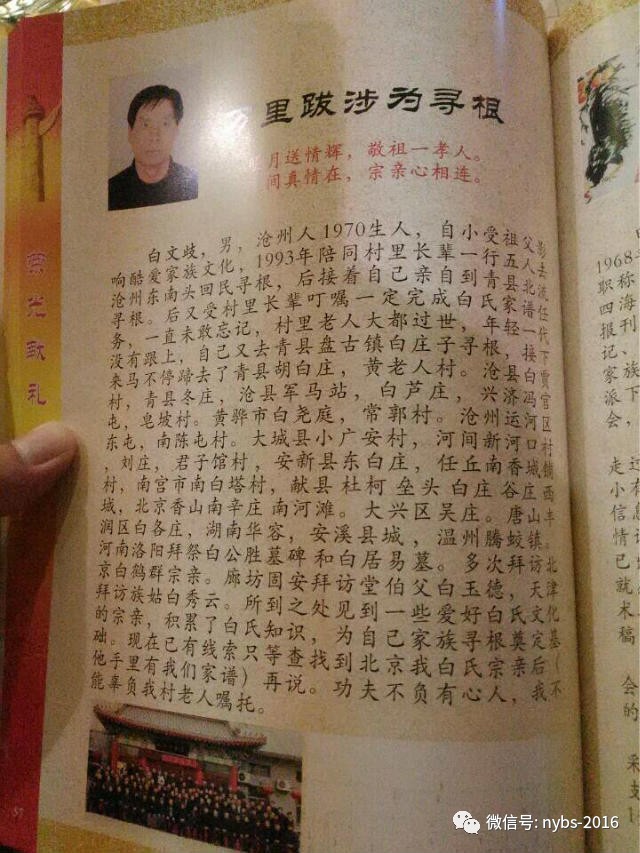 里跋涉为寻根
月送情辉，敬祖一孝人。
间真情在，宗亲心相连。
白文歧，男，沧州人1970生人，自小受祖父影
响酷爱家族文化，1993年陪同村里长辈一行五人去
沧州东南头回民寻根，后接着自己亲自到青县北流
寻根。后又受村里长辈叮嘱一定完成白氏家谱任
务，一直未敢忘记，村里老人大都过世，年轻一代
没有跟上，自己又去青县盘古镇白庄子寻根，接下
来马不停蹄去了青县胡白庄，黄老人村。沧县白贾
村，青县冬庄，沧县军马站，白芦庄，兴济冯官
屯，皂坡村。黄骅市白尧庭，常郭村。沧州运河区
东屯，南陈屯村。大城县小广安村，河间新河口村
，刘庄，君子馆村，安新县东白庄，任丘南香城铺
村，南宫市南白塔村，献县杜柯垒头白庄谷庄西
城，北京香山南辛庄南河滩。大兴区吴庄。唐山丰
润区白各庄，湖南华容，安溪县城，温州腾蛟镇。
河南洛阳拜祭白公胜墓碑和白居易墓。多次拜访北
京白鹤群宗亲。廊坊固安拜访堂伯父白玉德，天津
拜访族姑白秀云。所到之处见到一些爱好白氏文化
的宗亲，积累了白氏知识，为自己家族寻根奠定基
础。现在已有线索只等查找到北京我白氏宗亲后（
他手里有我们家谱）再说。功夫不负有心人，我不
能辜负我村老人嘱托。
57
1968
职称
四海
报刊
记、
家族
派下
会，
走过
小有
信息
情
已
就
术
稿
会
的
采
支
微信号: nybs-2016